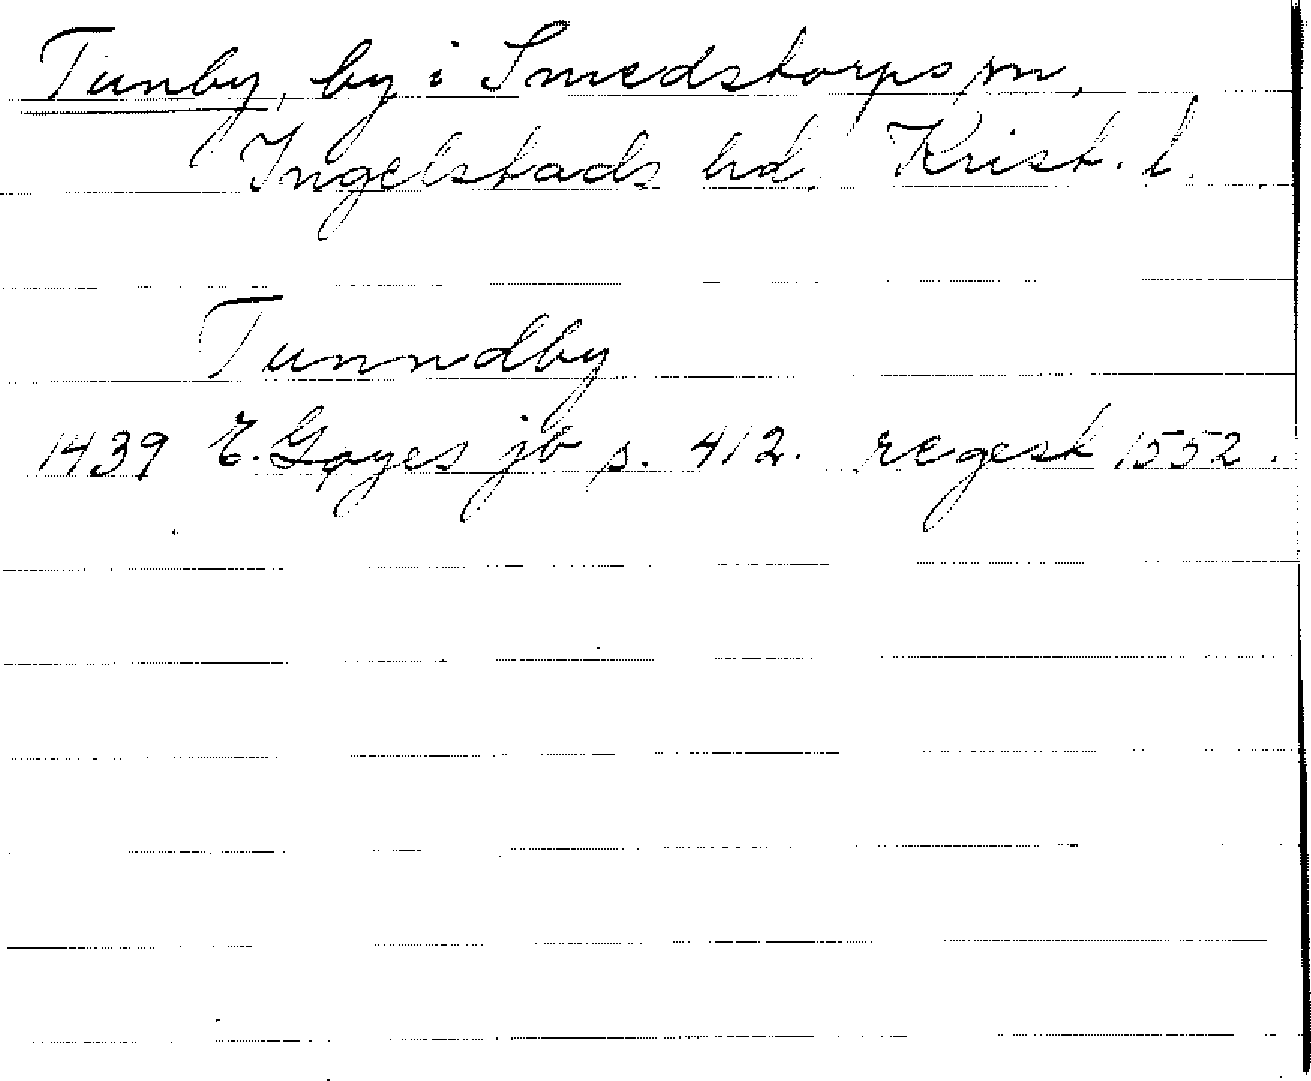 Tunby, by i Smedstorps sn,
Ingelstads hd. Krist. l.
Tunndby
1439 E. Gøyes jb s. 412. regest 1552.